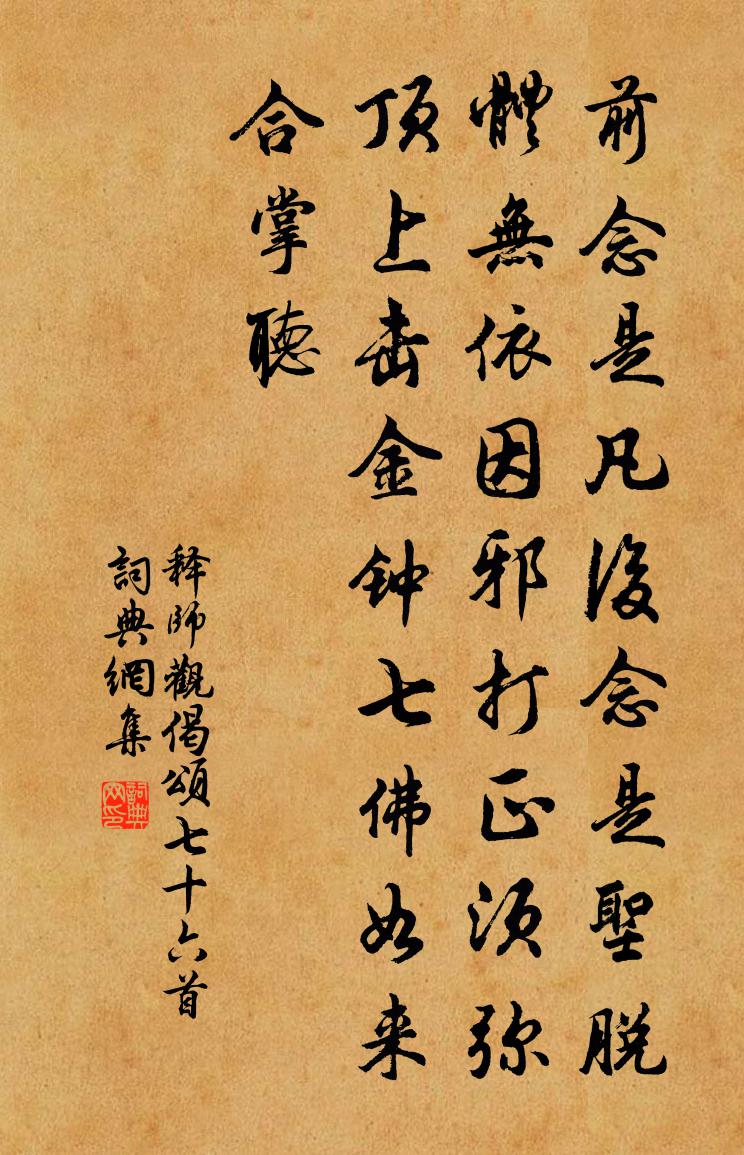 前念是凡後念是聖脱
體無依因邪打正須弥
顶上击金钟七佛如来
合掌聽
释師觀偈頌七十六首
詞典網集
詞典网印